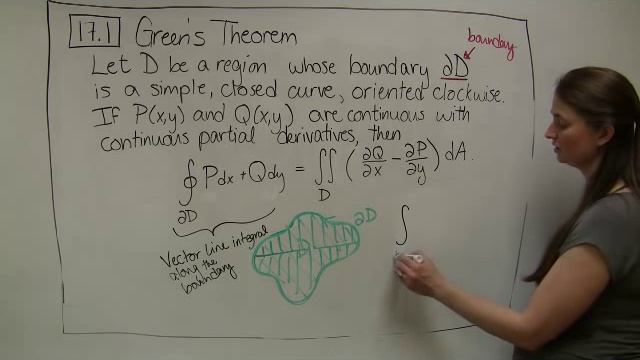 17.1 Green's Theorem
boundary
Let D be a region whose boundary ∂D
is a simple, closed curve, oriented clockwise.
If P(x,y) and Q(x,y) are continuous with
continuous partial derivatives, then
∮_∂D Pdx + Qdy = ∬_D (∂Q/∂x - ∂P/∂y) dA.
Vector line integral
along the
boundary
∂D
D
∫